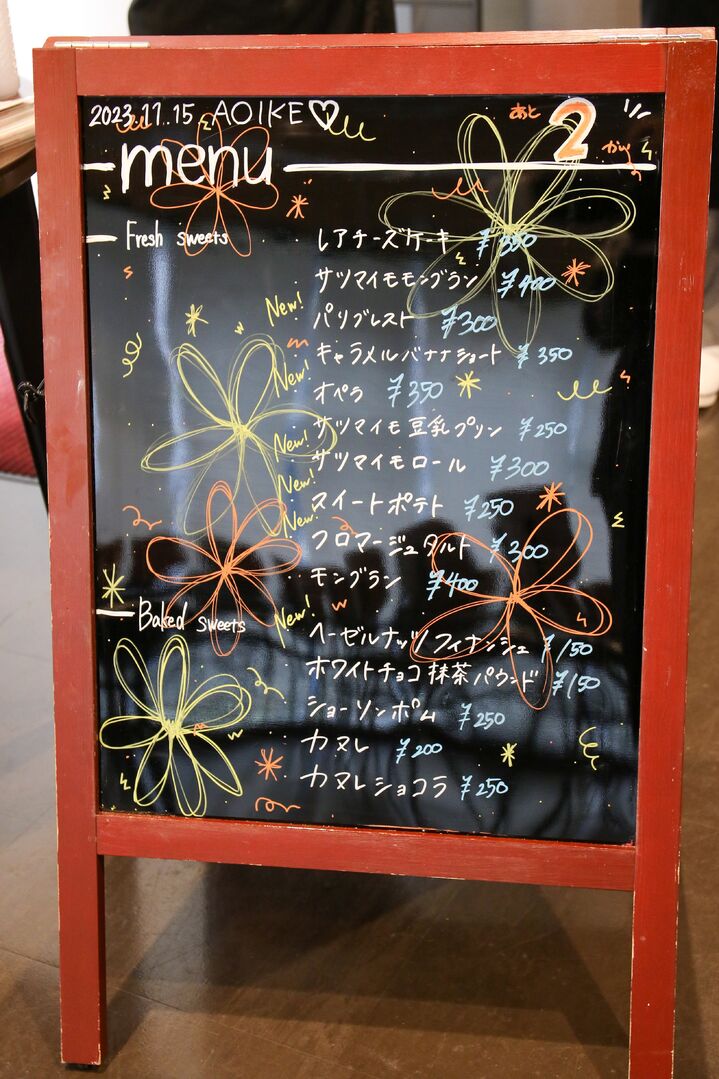 2023.11.15 AOIKE♡ あと 2 かい
menu
Fresh sweets
レアチーズケーキ ¥350
サツマイモモンブラン ¥400
New! パリブレスト ¥300
キャラメルバナナショート ¥350
New! オペラ ¥350
New! サツマイモ豆乳プリン ¥250
サツマイモロール ¥300
New! スイートポテト ¥250
New! フロマージュタルト ¥300
モンブラン ¥400
Baked sweets
New! ヘーゼルナッツフィナンシェ ¥150
ホワイトチョコ抹茶パウンド ¥150
ショーソンポム ¥250
カヌレ ¥200
カヌレショコラ ¥250